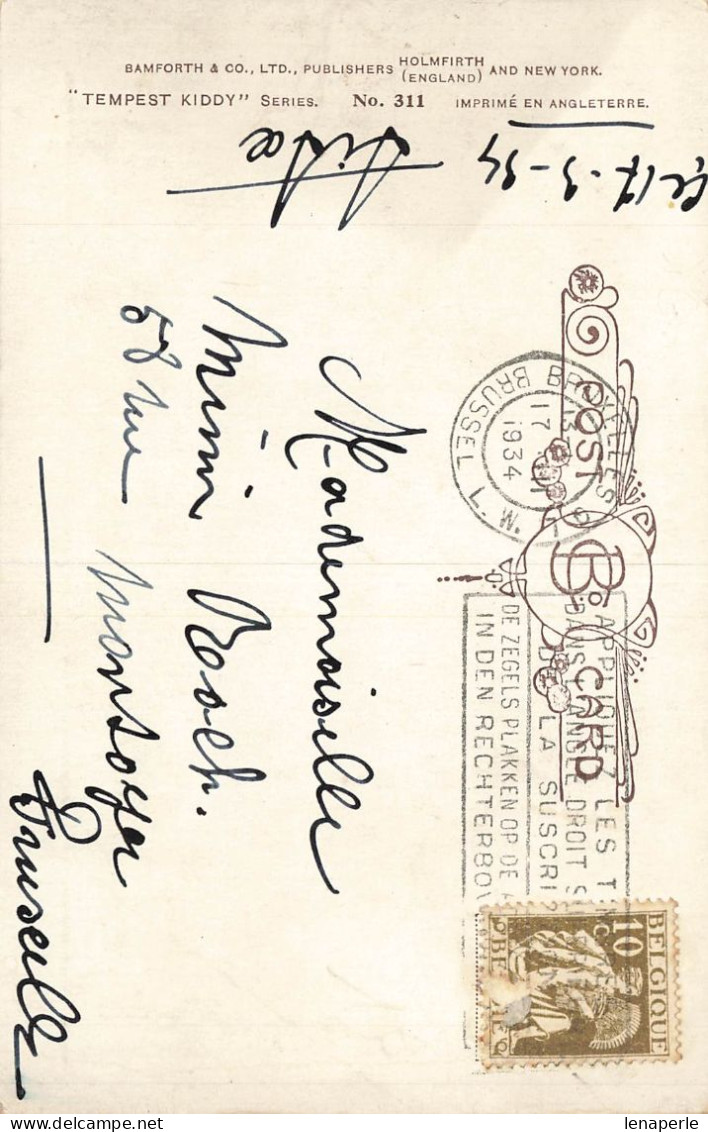 BAMFORTH & CO., LTD., PUBLISHERS HOLMFIRTH (ENGLAND) AND NEW YORK.
"TEMPEST KIDDY" SERIES. No. 311 IMPRIMÉ EN ANGLETERRE.
17-3-34
POST CARD
B
BRUXELLES
BRUSSEL
17
1934
APPLIQUEZ LES
DANS L'ANGLE DROIT
LA SUSCRI
DE ZEGELS PLAKKEN OP DE
IN DEN RECHTERBOV
10 c
BELGIQUE
Mademoiselle
Mimi Roch.
58 rue Montoyer
Bruxelles
lenaperle